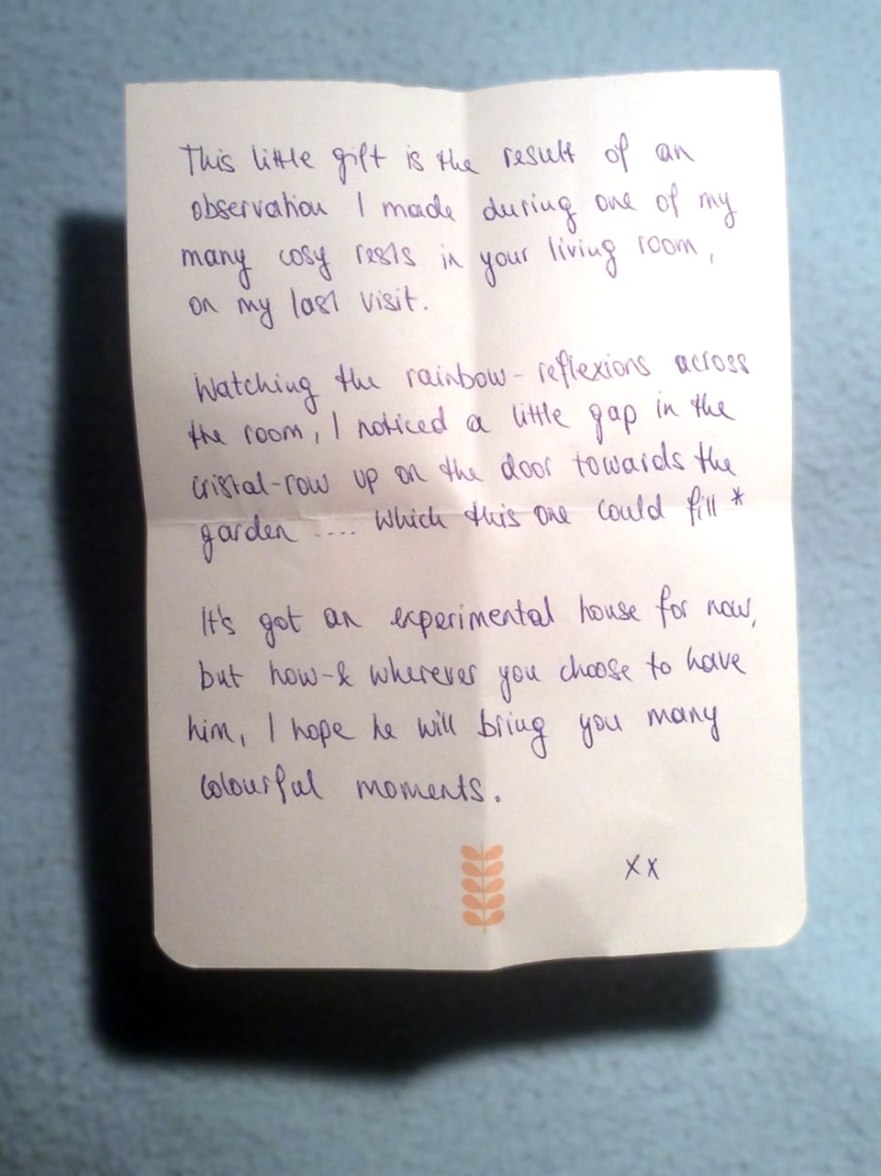 This little gift is the result of an
observation I made during one of my
many cosy rests in your living room,
on my last visit.
Watching the rainbow-reflexions across
the room, I noticed a little gap in the
cristal-row up on the door towards the
garden .... which this one could fill *
It's got an experimental house for now,
but how-& wherever you choose to have
him, I hope he will bring you many
colourful moments.
xx